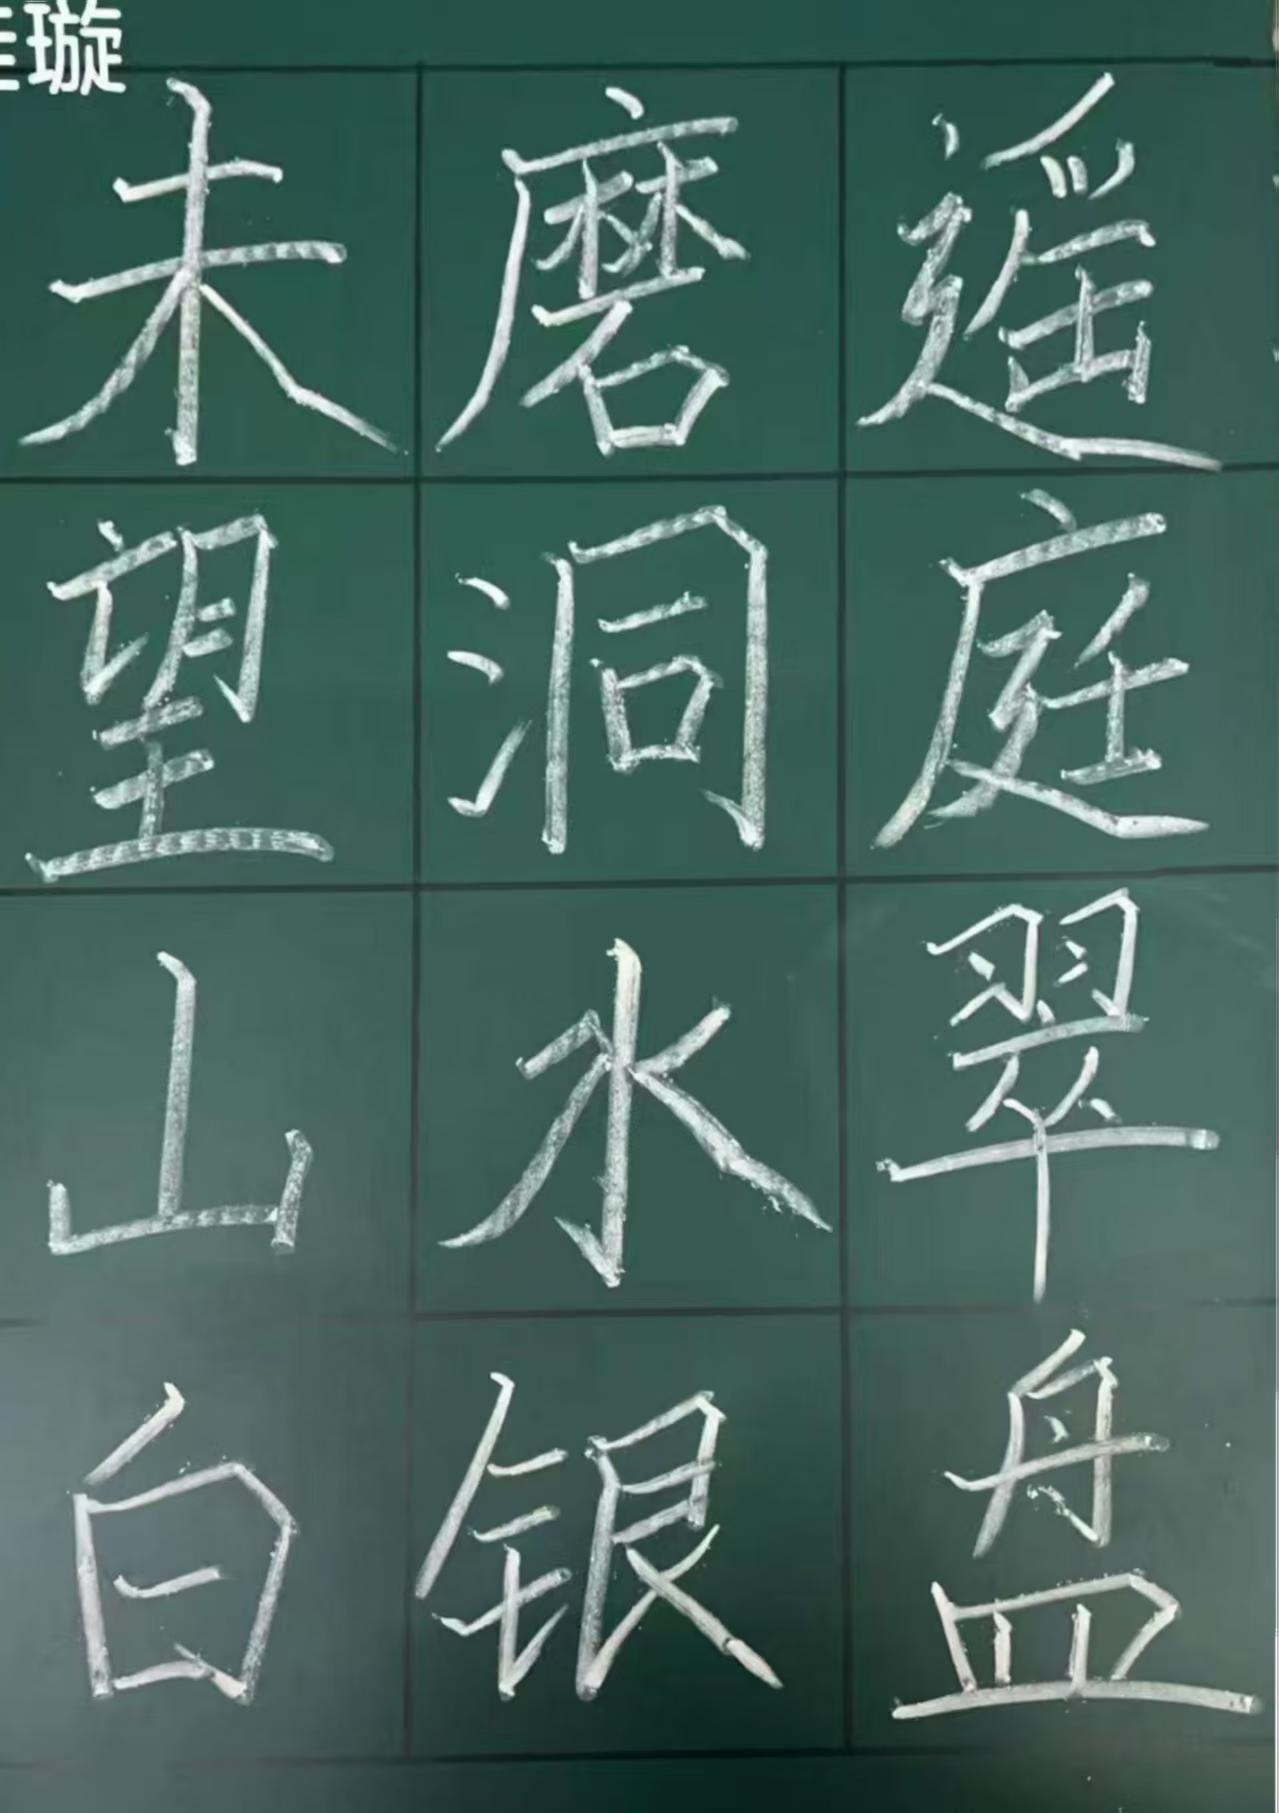 璇
未磨遥
望洞庭
山水翠
白银盘